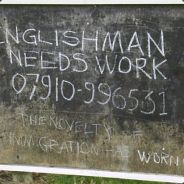 NGLISHMAN
NEEDS WORK
07910-996531
THE NOVELTY OF
IMMIGRATION HAS WORN